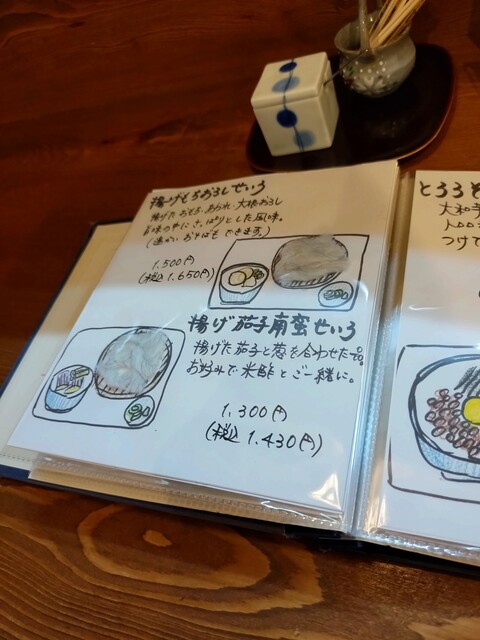 揚げもちおろしせいろ
揚げたおもち、あられ、大根おろし
旨味の中にさっぱりとした風味。
(温かいおそばもできます。)
1.500円
(税込 1.650円)
揚げ茄子南蛮せいろ
揚げた茄子と葱を合わせたつゆ。
お好みで米酢とご一緒に。
1.300円
(税込 1.430円)
とろろそ
大和
トロロ
つけて